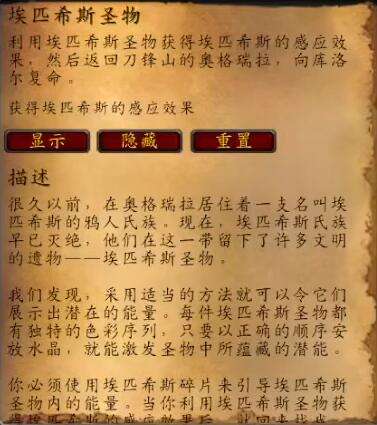 埃匹希斯圣物
利用埃匹希斯圣物获得埃匹希斯的感应效
果，然后返回刀锋山的奥格瑞拉，向库洛
尔复命。
获得埃匹希斯的感应效果
显示 隐藏 重置
描述
很久以前，在奥格瑞拉居住着一支名叫埃
匹希斯的鸦人氏族。现在，埃匹希斯氏族
早已灭绝，他们在这一带留下了许多文明
的遗物——埃匹希斯圣物。
我们发现，采用适当的方法就可以令它们
展示出潜在的能量。每件埃匹希斯圣物都
有独特的色彩序列，只要以正确的顺序安
放水晶，就能激发圣物中所蕴藏的潜能。
你必须使用埃匹希斯碎片来引导埃匹希斯
圣物内的能量。当你利用埃匹希斯圣物获
得埃匹希斯的感应效果后，就回来找我。